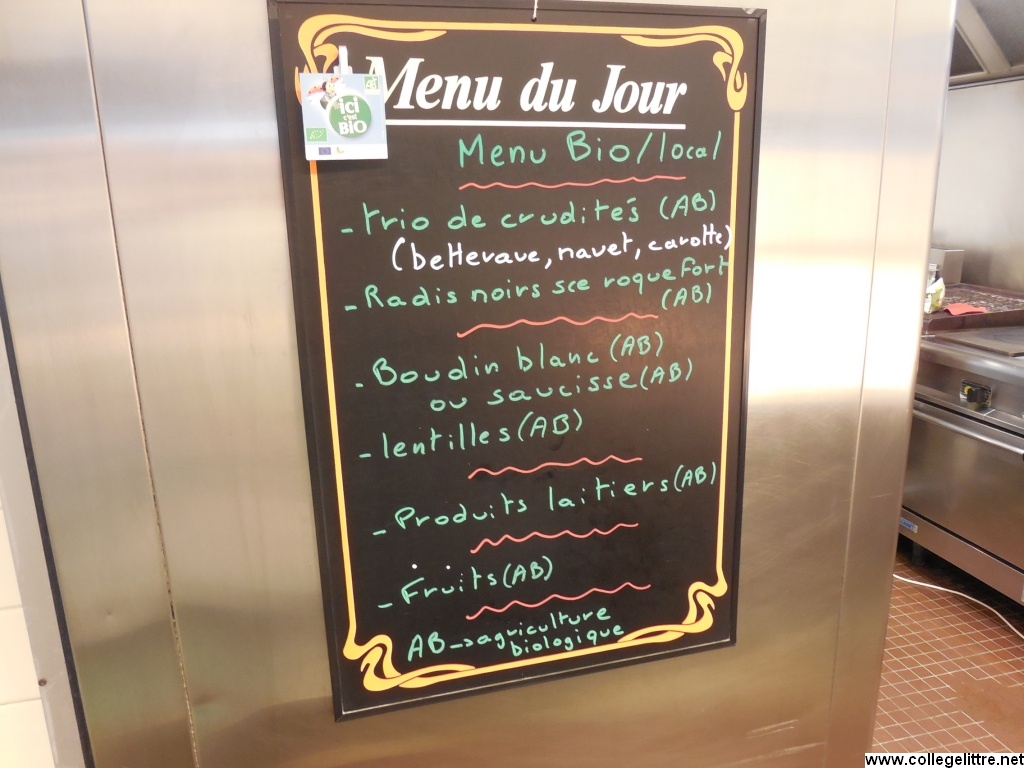 Menu du Jour
ici
c'est
BiO
Menu Bio/local
- trio de crudités (AB)
(betterave, navet, carotte)
- Radis noirs sce roquefort
(AB)
- Boudin blanc (AB)
ou saucisse (AB)
- lentilles (AB)
- Produits laitiers (AB)
- Fruits (AB)
AB -> agriculture
biologique
www.collegelittre.net